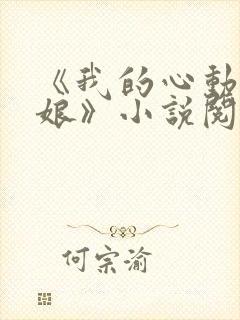 《我的心動
娘》小說閱
何宗渝